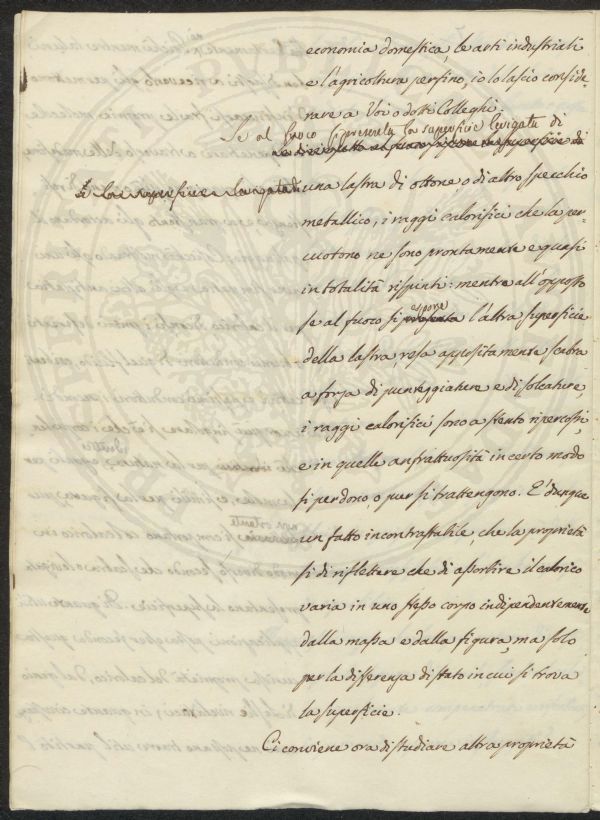 economia domestica, le arti industriali
e l'agricoltura persino, io lo lascio conside-
rare a Voi o dotti Colleghi.
Se al fuoco si presenta la superficie levigata di
la superficie levigata di
una lastra di ottone o di altro specchio
metallico, i raggi calorifici che la per-
cuotono ne sono prontamente e quasi
in totalità rispinti: mentre all'opposto
se al fuoco si presenta espone l'altra superficie
della lastra, resa appositamente scabra
a forza di punteggiature e di solcature,
i raggi calorifici sono a stento ripercossi,
e in quelle anfrattuosità in certo modo
si perdono, o pur si trattengono. E' dunque
un fatto incontrastabile, che la proprietà
sì di riflettere che di assorbire il calorico
varia in uno stesso corpo indipendentemente
dalla massa e dalla figura, ma solo
per la differenza di stato in cui si trova
la superficie.
Ci conviene ora di studiare altra proprietà